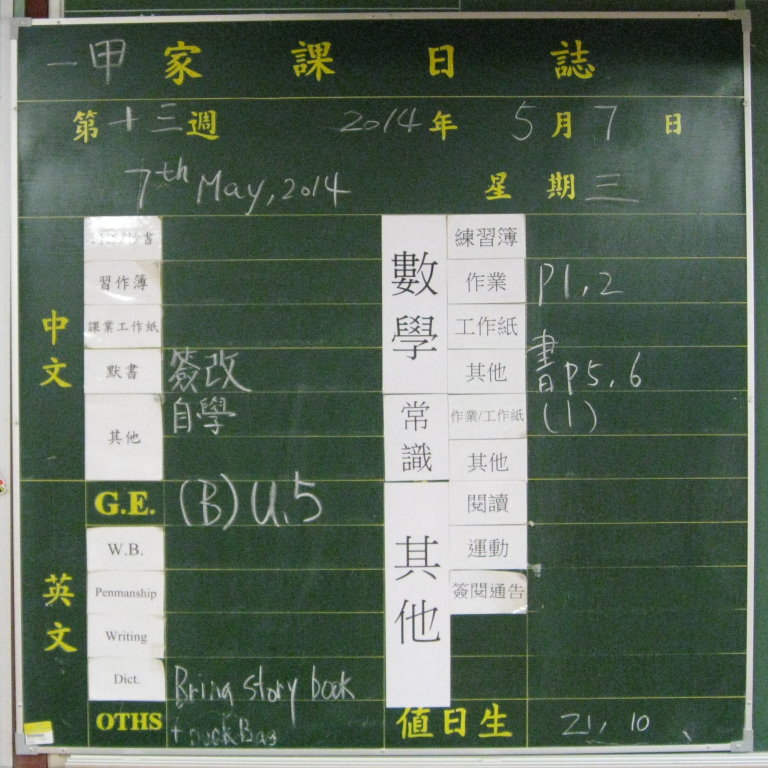 一甲家課日誌
第十三週 2014年 5月7日
7th May, 2014 星期三
中文
書
習作簿
課業工作紙
默書 簽改
其他 自學
英文
G.E. (B) U.5
W.B.
Penmanship
Writing
Dict.
OTHS Bring story book
數學
練習簿
作業 P1,2
工作紙
其他 書P5,6
常識
作業/工作紙 (1)
其他
其他
閱讀
運動
簽閱通告
值日生 21, 10